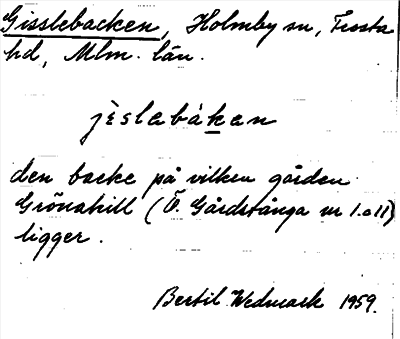 Gisslebacken, Holmby sn, Frosta
hd, Mlm. län.
jèslebàken
den backe på vilken gården
Grönahill (Ö. Gårdstånga nr 1 o 11)
ligger.
Bertil Wedmark 1959.